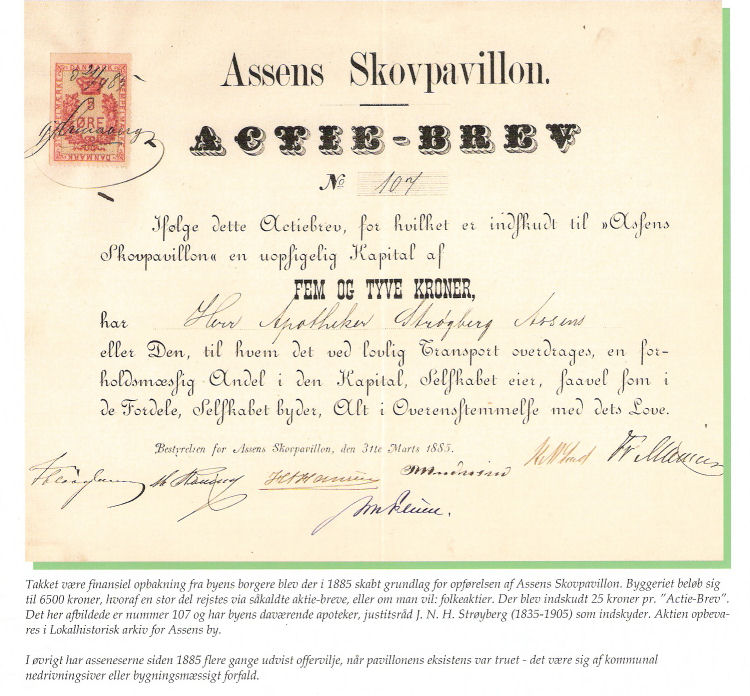 DANMARK
8 ØRE
DANMARK
Assens Skovpavillon.
ACTIE-BREV
No 107
Ifølge dette Actiebrev, for hvilket er indskudt til »Assens
Skovpavillon« en uopsigelig Kapital af
FEM OG TYVE KRONER,
har Herr Apotheker Strøyberg Assens
eller Den, til hvem det ved lovlig Transport overdrages, en for-
holdsmæssig Andel i den Kapital, Selskabet eier, saavel som i
de Fordele, Selskabet byder, Alt i Overensstemmelse med dets Love.
Bestyrelsen for Assens Skovpavillon, den 31te Marts 1885.
Takket være finansiel opbakning fra byens borgere blev der i 1885 skabt grundlag for opførelsen af Assens Skovpavillon. Byggeriet beløb sig
til 6500 kroner, hvoraf en stor del rejstes via såkaldte aktie-breve, eller om man vil: folkeaktier. Der blev indskudt 25 kroner pr. "Actie-Brev".
Det her afbildede er nummer 107 og har byens daværende apoteker, justitsråd J. N. H. Strøyberg (1835-1905) som indskyder. Aktien opbeva-
res i Lokalhistorisk arkiv for Assens by.
I øvrigt har asseneserne siden 1885 flere gange udvist offervilje, når pavillonens eksistens var truet - det være sig af kommunal
nedrivningsiver eller bygningsmæssigt forfald.